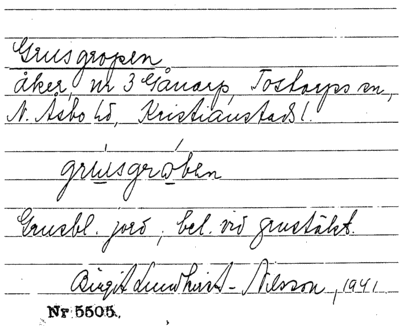 Grusgropen
åker, nr 3 Gånarp, Tåstarps sn,
N. Åsbo hd, Kristianstads l.
grusgrøben
Grusbl. jord, bel. vid grustäkt.
Birgit Lundkvist-Nilsson, 1941.
Nr 5505.